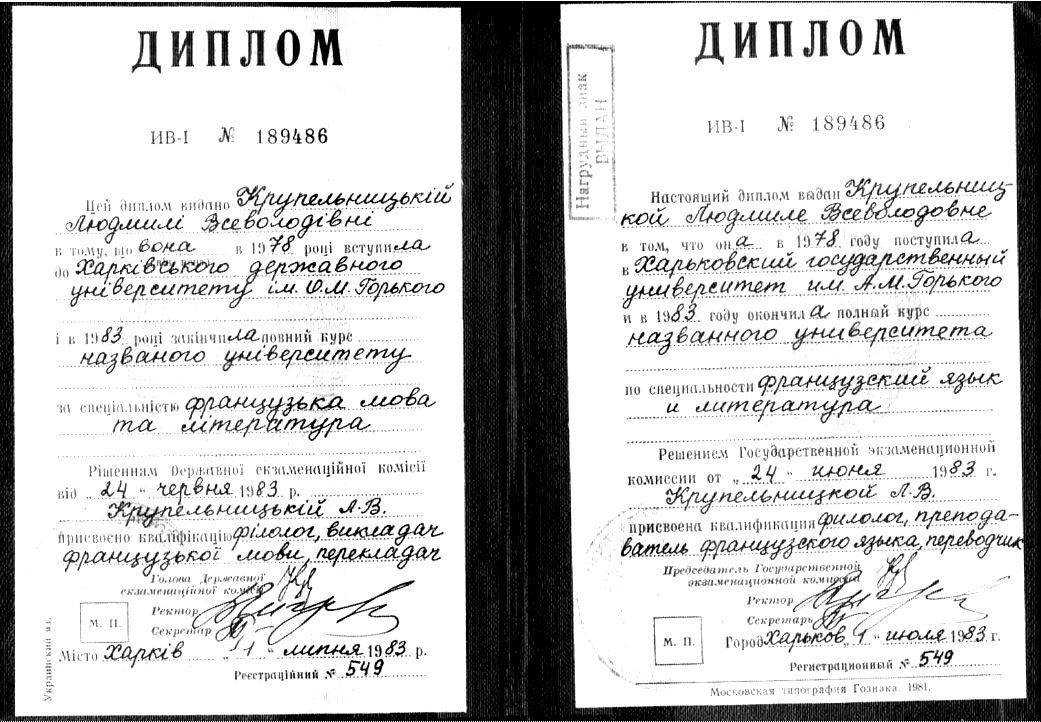 ДИПЛОМ
ИВ-I № 189486
Цей диплом видано Крупельницькій
Людмилі Всеволодівні
в тому, що вона в 1978 році вступила
до Харківського державного
університету ім. О.М. Горького
і в 1983 році закінчила повний курс
названого університету
за спеціальністю французька мова
та література
Рішенням Державної екзаменаційної комісії
від „24“ червня 1983 р.
Крупельницькій Л.В.
присвоєно кваліфікацію філолог, викладач
французької мови, перекладач
Голова Державної
екзаменаційної комісії
Ректор
Секретар
М. П.
Місто Харків „1“ липня 1983 р.
Реєстраційний № 549
Украинский яз.
ДИПЛОМ
Нагрудный знак
ВЫДАН
ИВ-I № 189486
Настоящий диплом выдан Крупельниц-
кой Людмиле Всеволодовне
в том, что она в 1978 году поступила
в Харьковский государственный
университет им. А.М. Горького
и в 1983 году окончила полный курс
названного университета
по специальности французский язык
и литература
Решением Государственной экзаменационной
комиссии от „24“ июня 1983 г.
Крупельницкой Л.В.
присвоена квалификация филолог, препода-
ватель французского языка, переводчик
Председатель Государственной
экзаменационной комиссии
Ректор
Секретарь
М. П.
Город Харьков „1“ июля 1983 г.
Регистрационный № 549
Московская типография Гознака. 1981.